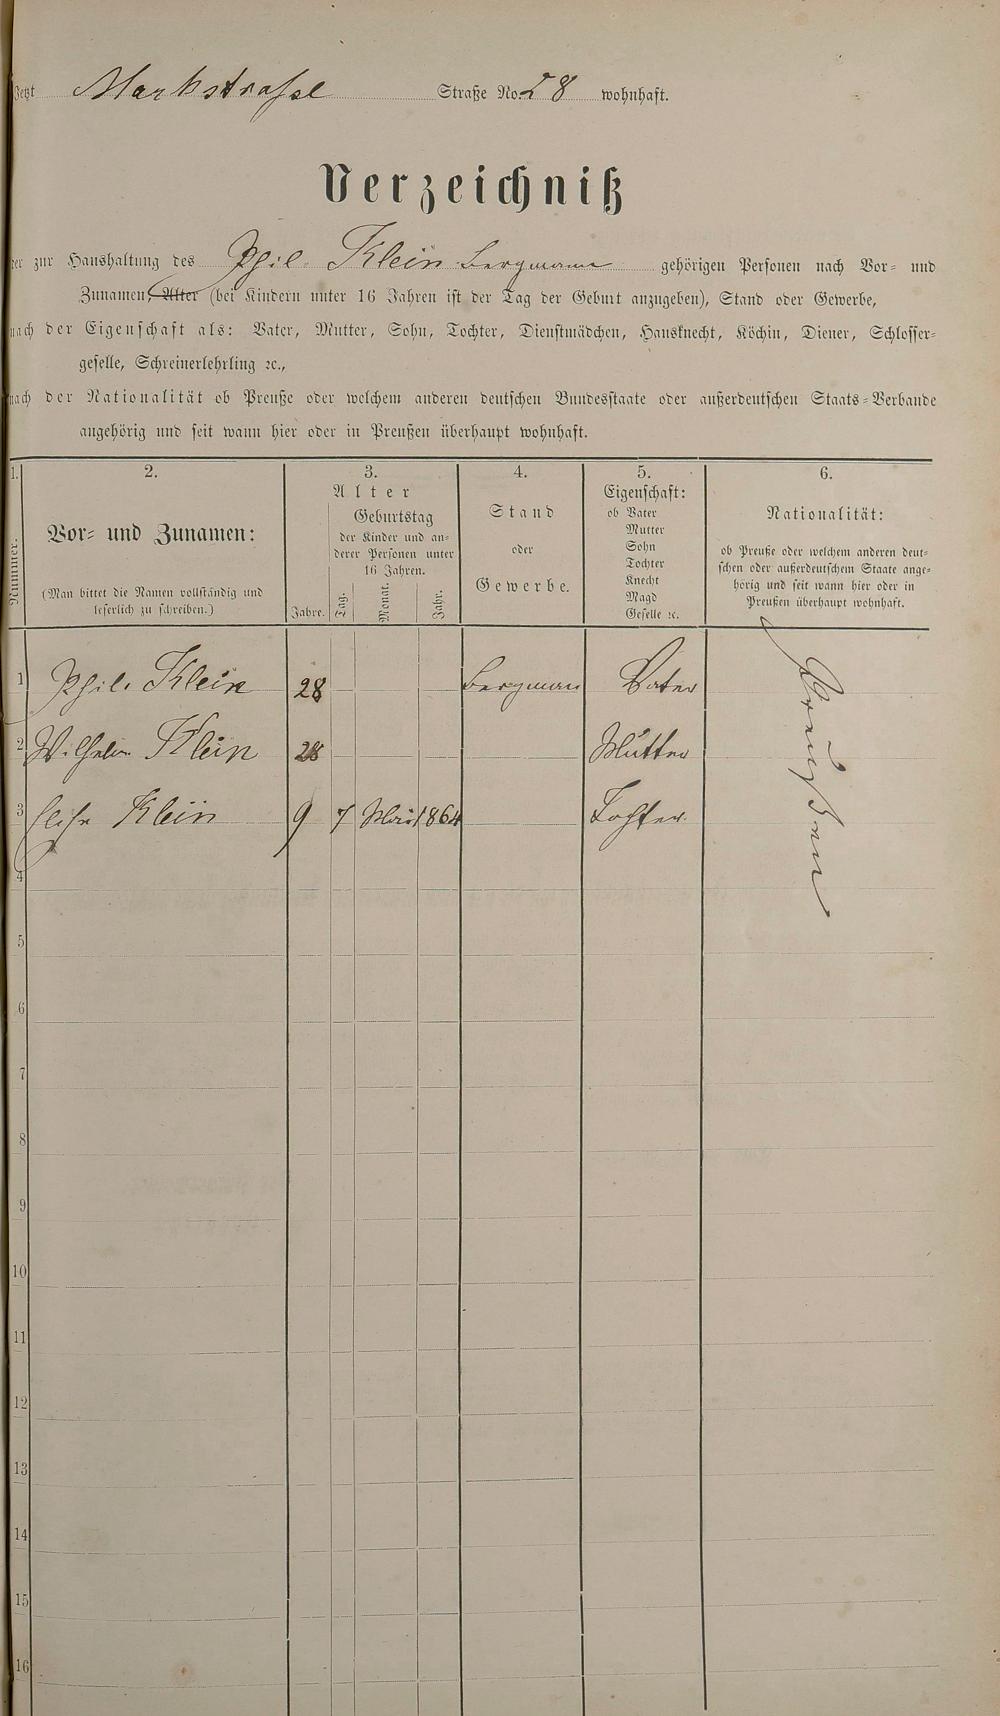 Jetzt Markstraße Straße No. 28 wohnhaft.
Verzeichniß
der zur Haushaltung des Phil. Klein Bergmann gehörigen Personen nach Vor- und
Zunamen, Alter (bei Kindern unter 16 Jahren ist der Tag der Geburt anzugeben), Stand oder Gewerbe,
nach der Eigenschaft als: Vater, Mutter, Sohn, Tochter, Dienstmädchen, Hausknecht, Köchin, Diener, Schlosser-
geselle, Schreinerlehrling ꝛc.,
nach der Nationalität ob Preuße oder welchem anderen deutschen Bundesstaate oder außerdeutschen Staats-Verbande
angehörig und seit wann hier oder in Preußen überhaupt wohnhaft.
1. 2. 3. 4. 5. 6.
Nummer.
Vor- und Zunamen:
(Man bittet die Namen vollständig und
leserlich zu schreiben.)
Alter
Geburtstag
der Kinder und an-
derer Personen unter
16 Jahren.
Jahre. Tag. Monat. Jahr.
Stand
oder
Gewerbe.
Eigenschaft:
ob Vater
Mutter
Sohn
Tochter
Knecht
Magd
Geselle ꝛc.
Nationalität:
ob Preuße oder welchem anderen deut-
schen oder außerdeutschem Staate ange-
hörig und seit wann hier oder in
Preußen überhaupt wohnhaft.
1 Phil. Klein 28 Bergman Vater Preußen
2 Wilhelm. Klein 28 Mutter
3 Klein 9 7 Mai 1864 Tochter
4
5
6
7
8
9
10
11
12
13
14
15
16